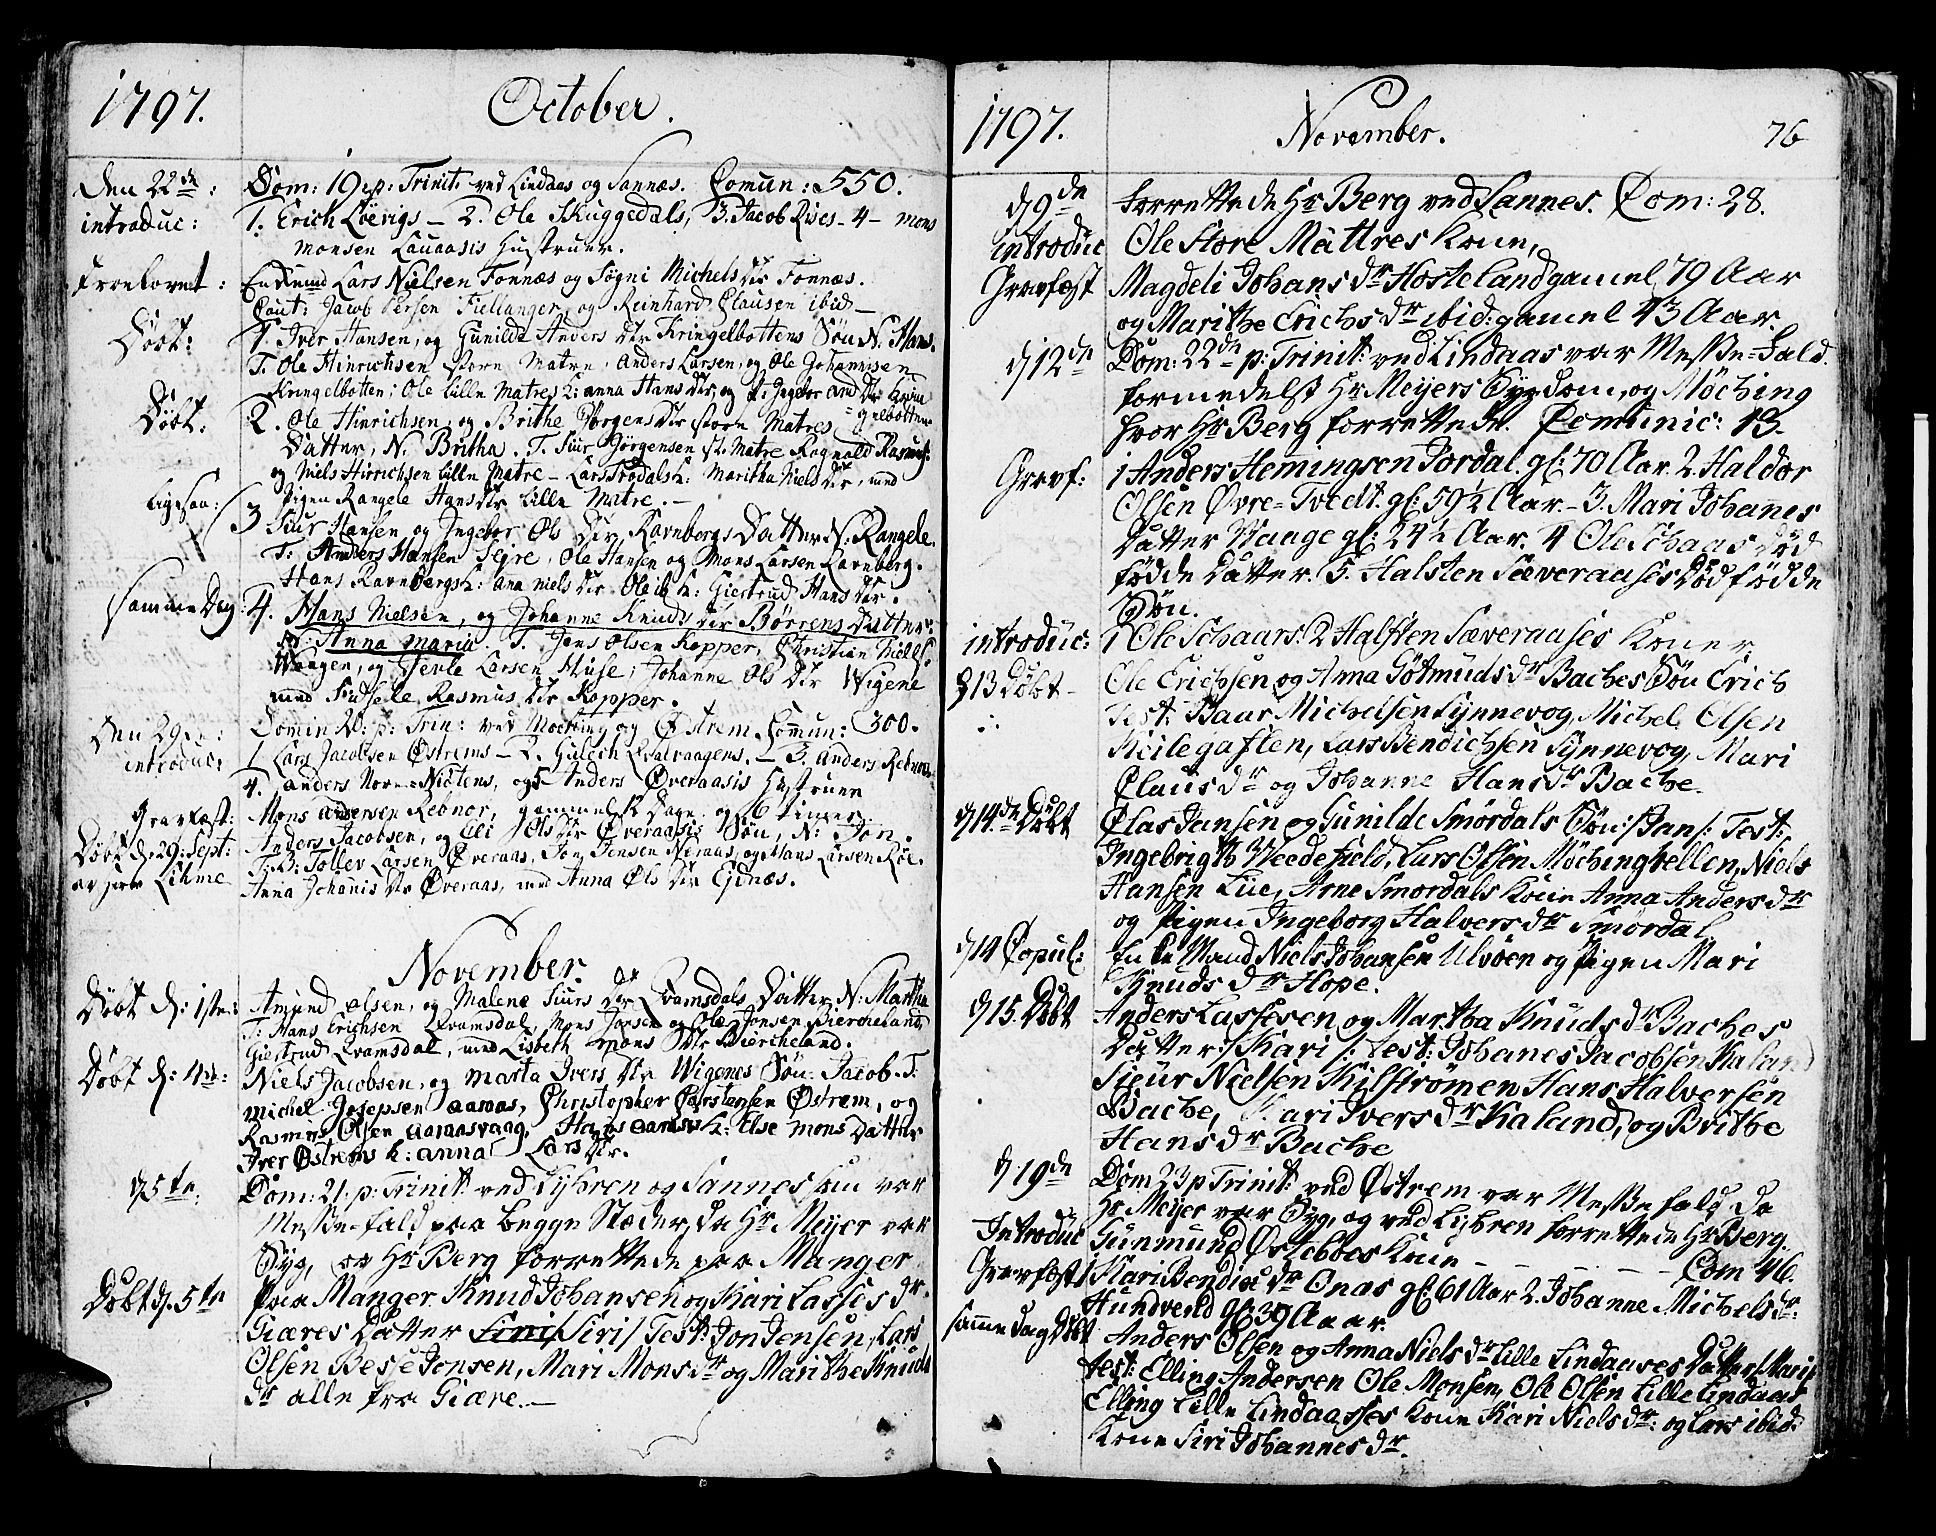 1797. October.
Den 22de: Dom: 19 p: Trinit: ved Lindaas og Sannæs. Comun: 550.
introduc: 1. Erich Löevigs – 2. Ole Skuggedals, 3. Jacob Rises – 4 – mons
monsen Lauaasis Hustruer.
Troelovet: Enkemd Lars Nielsen Fonnæs og Sögni Michels dtr Fonnæs.
Caut: Jacob Persen Fiellanger, og Reinhard Clausen ibid –
Döbt: 1. Iver Hansen, og Gunilde Anders dtr Kringelbottens Sön N. Hans.
T. Ole Hinrichsen store Matre, Anders Larsen, og Ole Johannisen
Kringelbotten; Ole lille Matres k: anna Hans dtr, og P: Ingebor And dtr Krin
gelbotten
Döbt: 2. Ole Hinrichsen og Brithe Jörgens dtr store Matres
Datter, N. Britha. T. Siur Jörgensen st. Matre Rognald Rasmus:
og Niels Hinrichsen lille Matre – Lars Trodals k: Maritha Niels dtr, med
Pigen Rangele Hans dtr lille Matre. –
ligesaa: 3 Siur Hansen og Ingebor Ols dtr Ravnbergs Datter N: Rangele.
T: Anders Hansen Segre, Ole Hansen og Mons Larsen Ravnberg.
Hans Ravnbergs k: Ana Niels dtr Ole ib k: Giertrud Hans dtr.
samme Dag 4. Hans Nielsen, og Johanne Knuds dtr Börrens Datter
N: Anna Maria. T. Jens Olsen Kopper, Christian Niels:
Waagen, og Larsen Huse; Johanne Ols dtr Wigene
med Sidsele Rasmus dtr Kopper.
Den 29de: Domin 20: p: Trin: ved Mocking og Östrem Comun: 300.
introduc: 1 Lars Jacobsen Östrems – 2. Gulech Qvalvaagens. – 3. Anders Rebnor
4. anders Nore Nistens, og 5 Anders Överaasis Hustruer
Gravfæst: Mons andersen Rebnor, gammel 8 Dage og 6 timer.
Döbt d. 29: Sept: Anders Jacobsen, og Eli Ols dtr Överaasis Sön, N: Jon.
av Herr Lihme T. B: Tollev Larsen Överaas, Jon Jensen Neraas, og Hans Larsen Röe.
Anna Johanis dtr Överaas, med Anna Ols dtr Eidnæs.
November.
Döbt d: 1ste: Amund olsen, og Malene Siurs dtr Qvamsdals Datter N: Martha
T: Hans Erichsen Qvamsdal, Mons Jonsen og Ole Jonsen Bierckeland,
Giertrud Qvamsdal, med Lisbeth Mons dtr Bierckeland.
Döbt d: 4de: Niels Jacobsen, og Marta Ivers dtr Wigenes Sön: Jacob. T.
Michel Josepsen aaraas, Christopher Carstensen Östrem, og
Rasmus Olsen aaraasvaag, Hans aaraas k: Else Mons Datter
Iver Östrems k: anna Lars dtr.
d 5te. Dom: 21: p: Trinit: ved Lyhren og Sannes som var
Messe-fald paa begge Stæder, da Hr Meyer var
Syg, og Hr Berg forrettede paa Manger
Döbt d. 5te Paa Manger Knud Johansen og Kari Lasses dr.
Giæres Datter Siri/ Test: Jon Jensen, Lars
Olsen Besse Jonsen, Mari Mons dr og Marithe Knuds
dr alle fra Giære. –
1797. November. 76
d 9de forrettede Hr Berg ved Sannes. Com: 28.
introduc Ole Store Mattres Kone,
Gravfæst Magdeli Johans dr Hosteland gamel 79 Aar
og Marithe Erichs dr ibid: gamel 43 Aar.
d 12de Dom: 22de p: Trinit: ved Lindaas var Messe-Fald
formedelst Hr Meyers Sygdom, og Möching
hvor Hr Berg forrettede. Comunic: 13.
Gravf: 1 Anders Hemingsen Jordal gl: 70 Aar. 2. Haldor
Olsen Övre-Tvedt gl: 59 1/2 Aar. – 3. Mari Johannes
Datter Vaage gl: 24 1/2 Aar. 4 Ole Schaas död
födde Datter. 5. Halsten Sæveraases Död fødde
Sön.
introduc: 1 Ole Schaars: 2 Halsten Sæveraases Koner
d 13 Döbt – Ole Erichsen og Anna Götmuds dr Baches Sön Erich
Test: Baar Michelsen Synnevog, Michel Olsen
Keilegaflen, Lars Bendichsen Synnevog, Mari
Claus dr og Johanne Hans dr Bache.
d 14de Döbt Olas Jansen og Gunilde Smördals Sön:/Jan/: Test:
Ingebrigth Veedefield, Lars Olsen Möchinghellen, Niels
Hansen Lüe, Arne Smordals Kone Anna Anders dr
og Pigen Ingeborg Halvers dr Smördal
d 14 Copul: Enke Mand Niels Johansen Ulvöen og Pigen Mari
Knuds dr Hope.
d 15. Döbt Anders Lassesen og Martha Knuds dr Baches
Datter:/Kari/: Test: Johanes Jacobsen Kaland
Sieur Nielsen Kilströmen Hans Halversen
Bache, Kari Ivers dr Kaland, og Brithe
Hans dr Bache
d 19de Dom 23 p Trinit: ved Östrem var Messefald da
Hr Meyer var Syg, og ved Lyhren forrettede Hr Berg.
Introduc Gunmund Östeböes Kone – – – – – Com 46.
Gravfæst 1 Kari Bendix dr Onas gl: 61 Aar 2. Johanne Michels dr:
Hundveld gl: 39 Aar.
samme dag Döbt Anders Olsen og Anna Niels dr Lille Lindaases Datter/Mari/
test: Elling Andersen Ole Monsen, Ole Olsen Lille Lindaas
Elling Lille Lindaasses Kone Kari Niels dr: og Lars ibid:
Kone Siri Johannes dr.